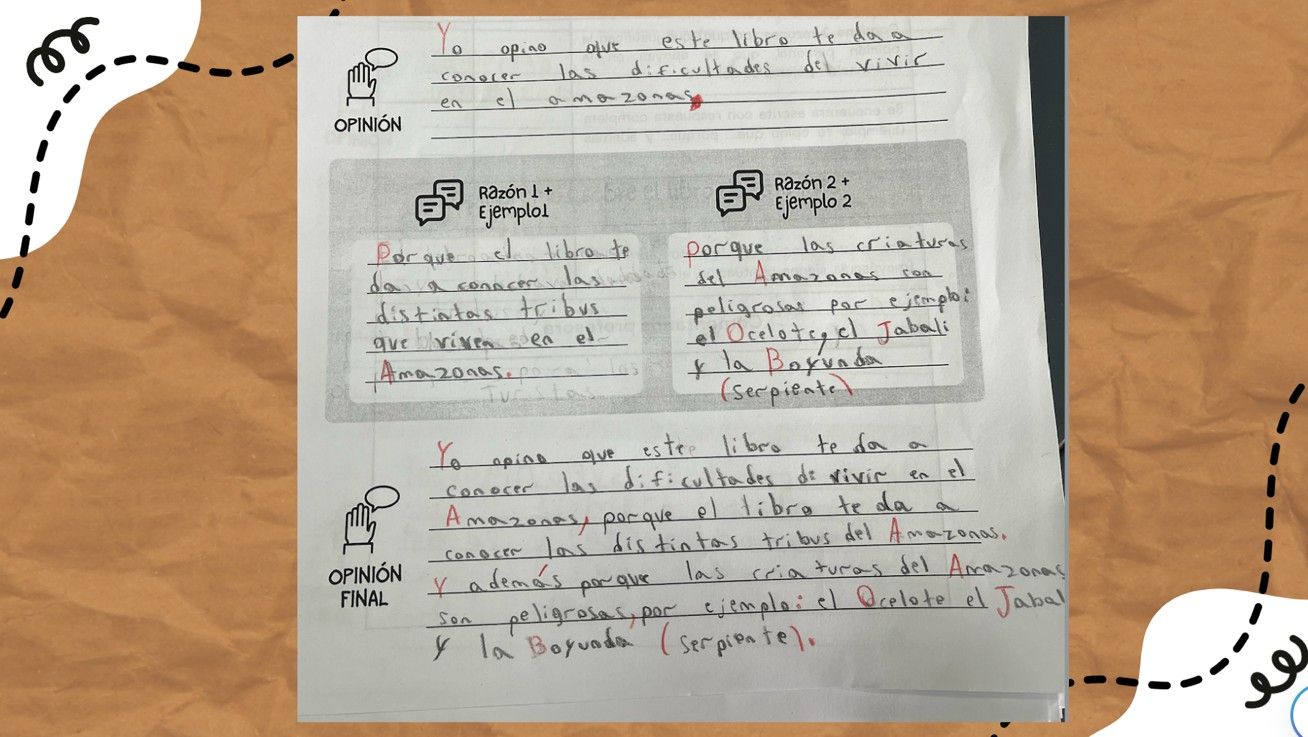 Yo opino que este libro te da a
conocer las dificultades del vivir
en el amazonas
OPINIÓN
Razón 1 +
Ejemplo1
Porque el libro te
da a conocer las
distintas tribus
que viven en el
Amazonas.
Razón 2 +
Ejemplo 2
Porque las criaturas
del Amazonas son
peligrosas por ejemplo:
el Ocelote, el Jabali
y la Boyunda
(serpiente)
Yo opino que este libro te da a
conocer las dificultades de vivir en el
Amazonas, porque el libro te da a
conocer las distintas tribus del Amazonas.
Y además porque las criaturas del Amazonas
son peligrosas, por ejemplo: el Ocelote el Jabal
y la Boyunda (serpiente).
OPINIÓN
FINAL